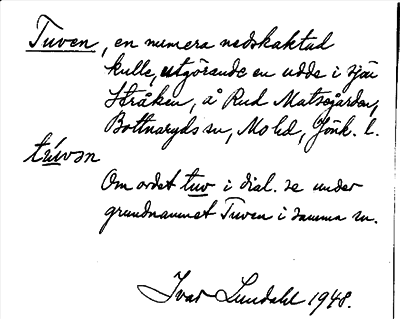 Tuven, en numera nedskaktad
kulle, utgörande en udde i sjön
Stråken, å Rud Matsgården,
Bottnaryds sn, Mo hd, Jönk. l.
tú̀vən
Om ordet tuv i dial. se under
grundnamnet Tuven i samma sn.
Ivar Lundahl 1948.